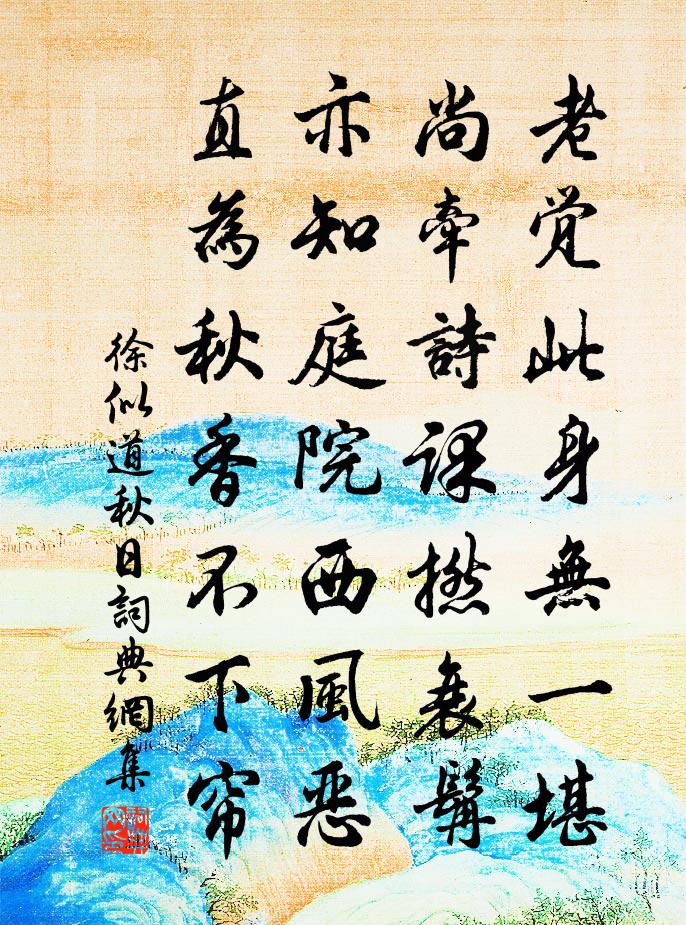 老觉此身無一堪
尚牵詩課撚衰髯
亦知庭院西風恶
直為秋香不下帘
徐似道秋日詞典網集